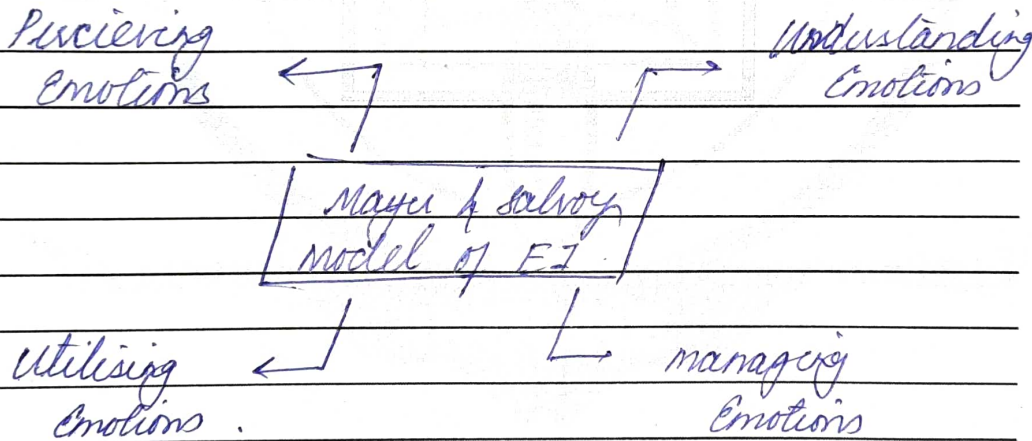 Percieving
Emotions
Understanding
Emotions
Mayer & Salvoy
Model of EI.
Utilising
Emotions.
managing
Emotions